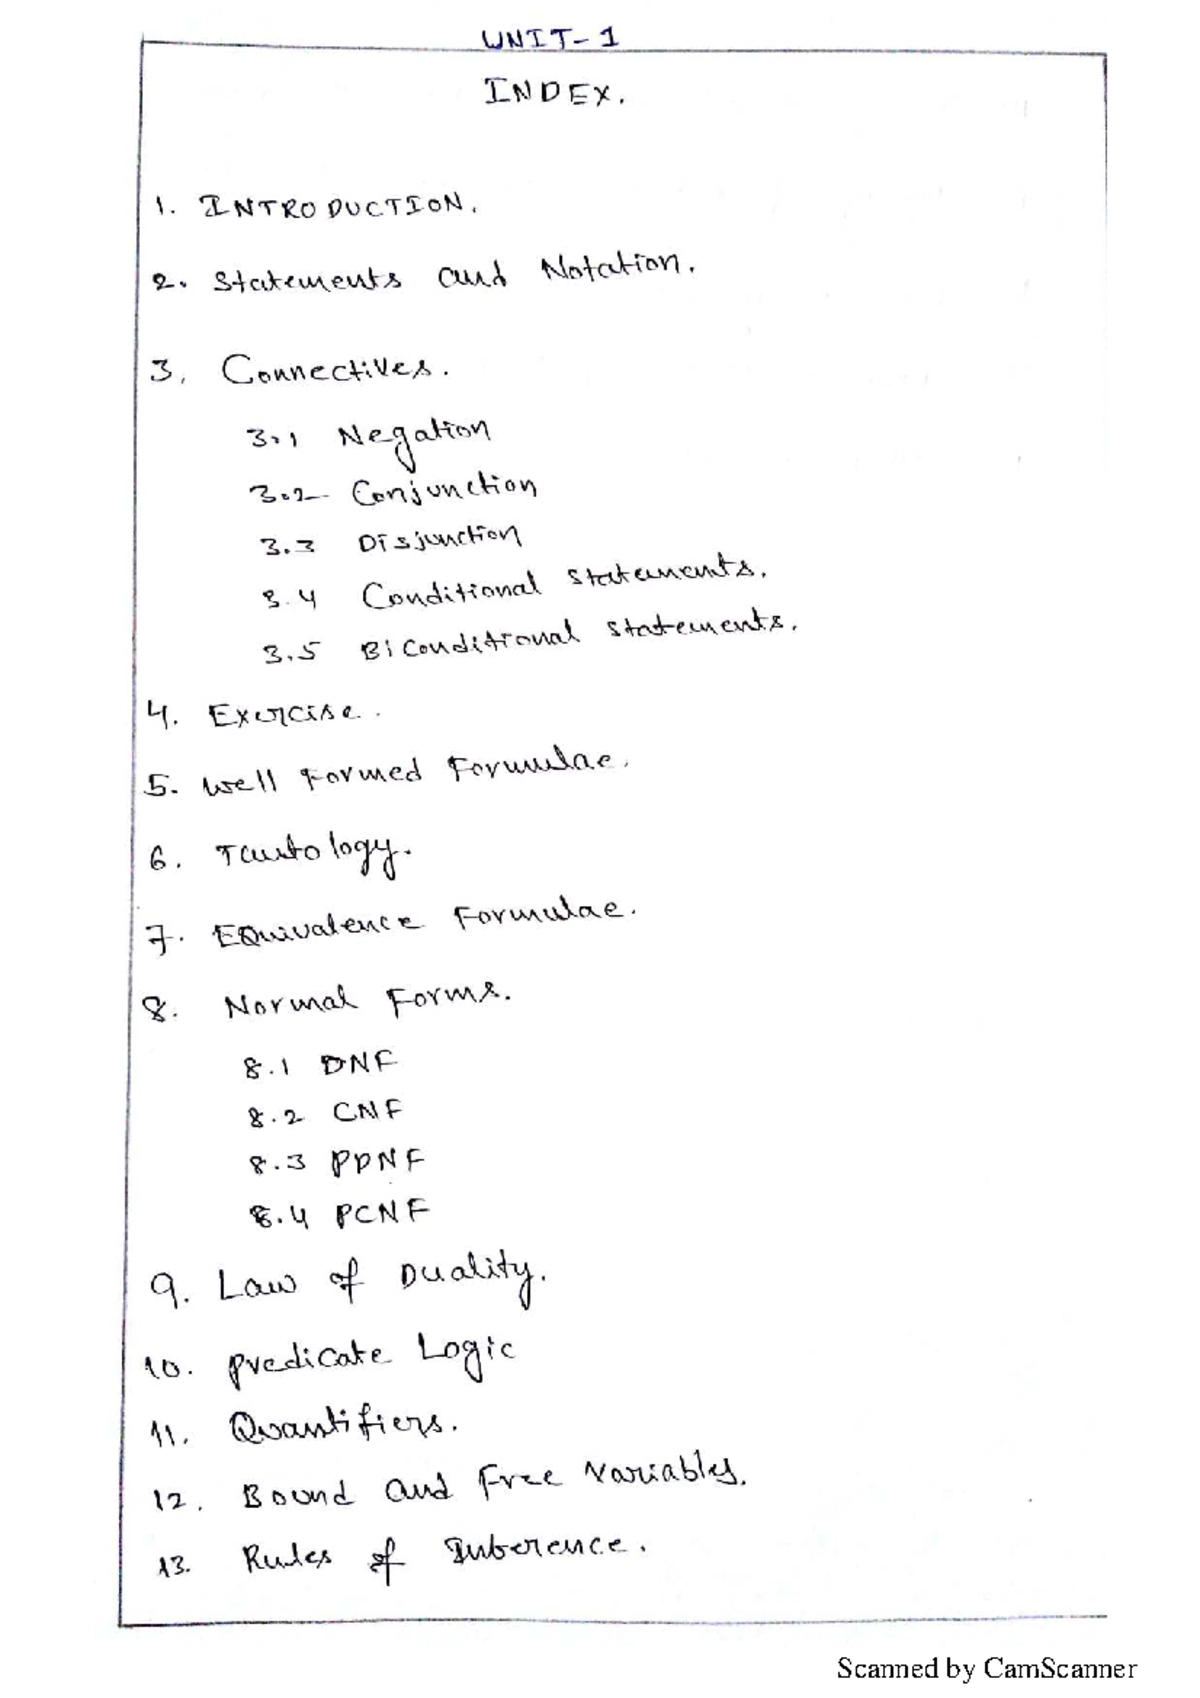 UNIT-1
INDEX.
1. INTRODUCTION.
2. Statements and Notation.
3. Connectives.
3.1 Negation
3.2 Conjunction
3.3 Disjunction
3.4 Conditional statements.
3.5 Biconditional statements.
4. Exercise.
5. Well Formed Formulae.
6. Tautology.
7. Equivalence Formulae.
8. Normal Forms.
8.1 DNF
8.2 CNF
8.3 PDNF
8.4 PCNF
9. Law of Duality.
10. Predicate Logic
11. Quantifiers.
12. Bound and Free Variables.
13. Rules of Inference.
Scanned by CamScanner